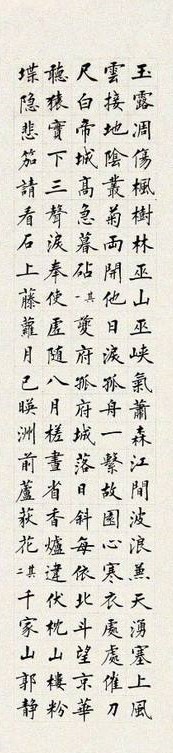 玉露凋傷楓樹林巫山巫峽氣蕭森江間波浪兼天湧塞上風
雲接地陰叢菊兩開他日淚孤舟一繫故園心寒衣處處催刀
尺白帝城高急暮砧其一夔府孤府城落日斜每依北斗望京華
聽猿實下三聲淚奉使虛隨八月槎畫省香爐違伏枕山樓粉
堞隱悲笳請看石上藤蘿月已暎洲前蘆荻花其二千家山郭靜